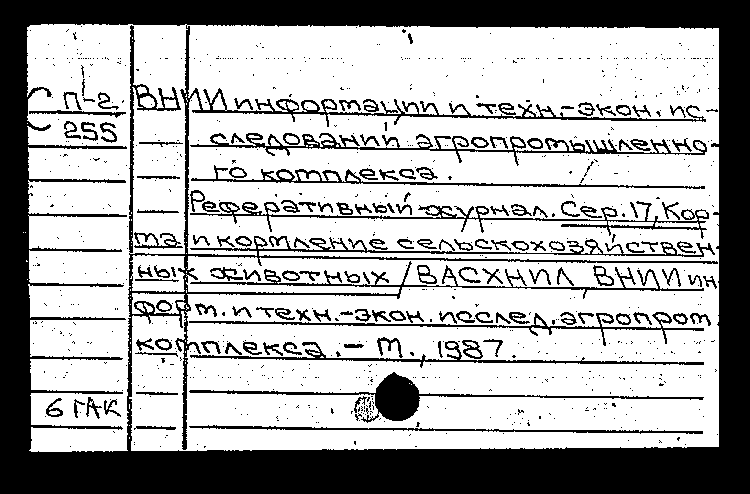 П-2 ВНИИ информации и техн.-экон. ис-
255 следований агропромышленно-
го комплекса.
Реферативный журнал. Сер. 17, Кор-
ма и кормление сельскохозяйствен-
ных животных / ВАСХНИЛ, ВНИИ ин-
форм. и техн.-экон. исслед. агропром.
комплекса. - М., 1987.
6 ГАК